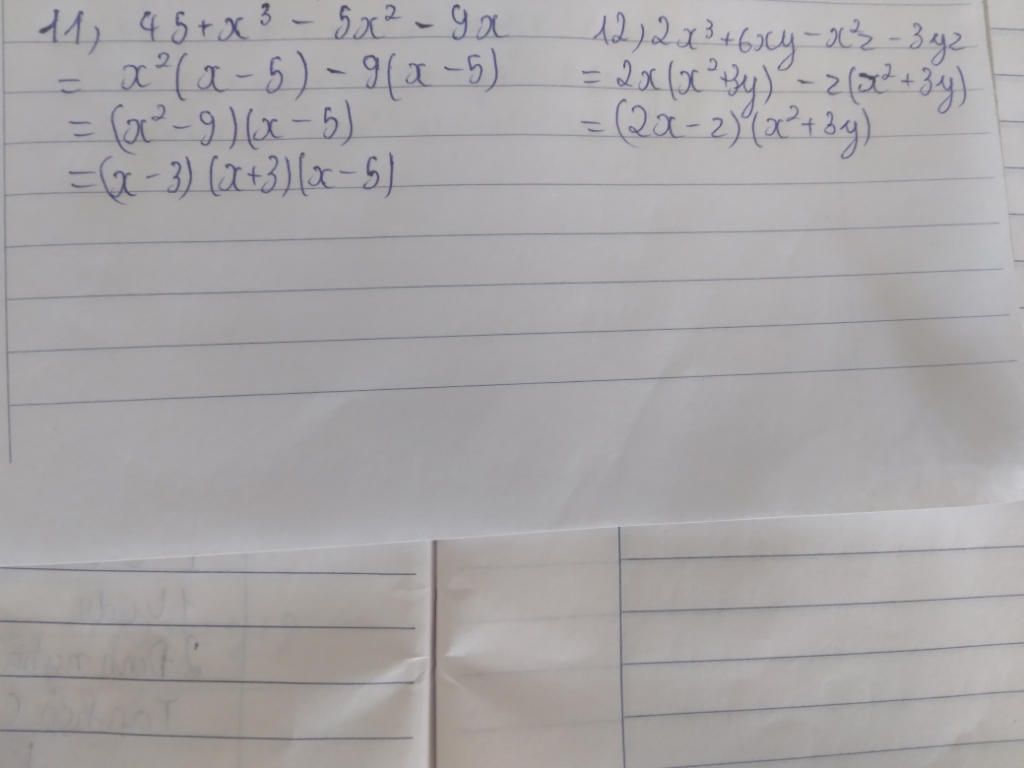 11, 45 + x³ - 5x² - 9x
= x²(x - 5) - 9(x - 5)
= (x² - 9)(x - 5)
= (x - 3)(x + 3)(x - 5)
12, 2x³ + 6xy - x²z - 3yz
= 2x(x² + 3y) - z(x² + 3y)
= (2x - z)(x² + 3y)